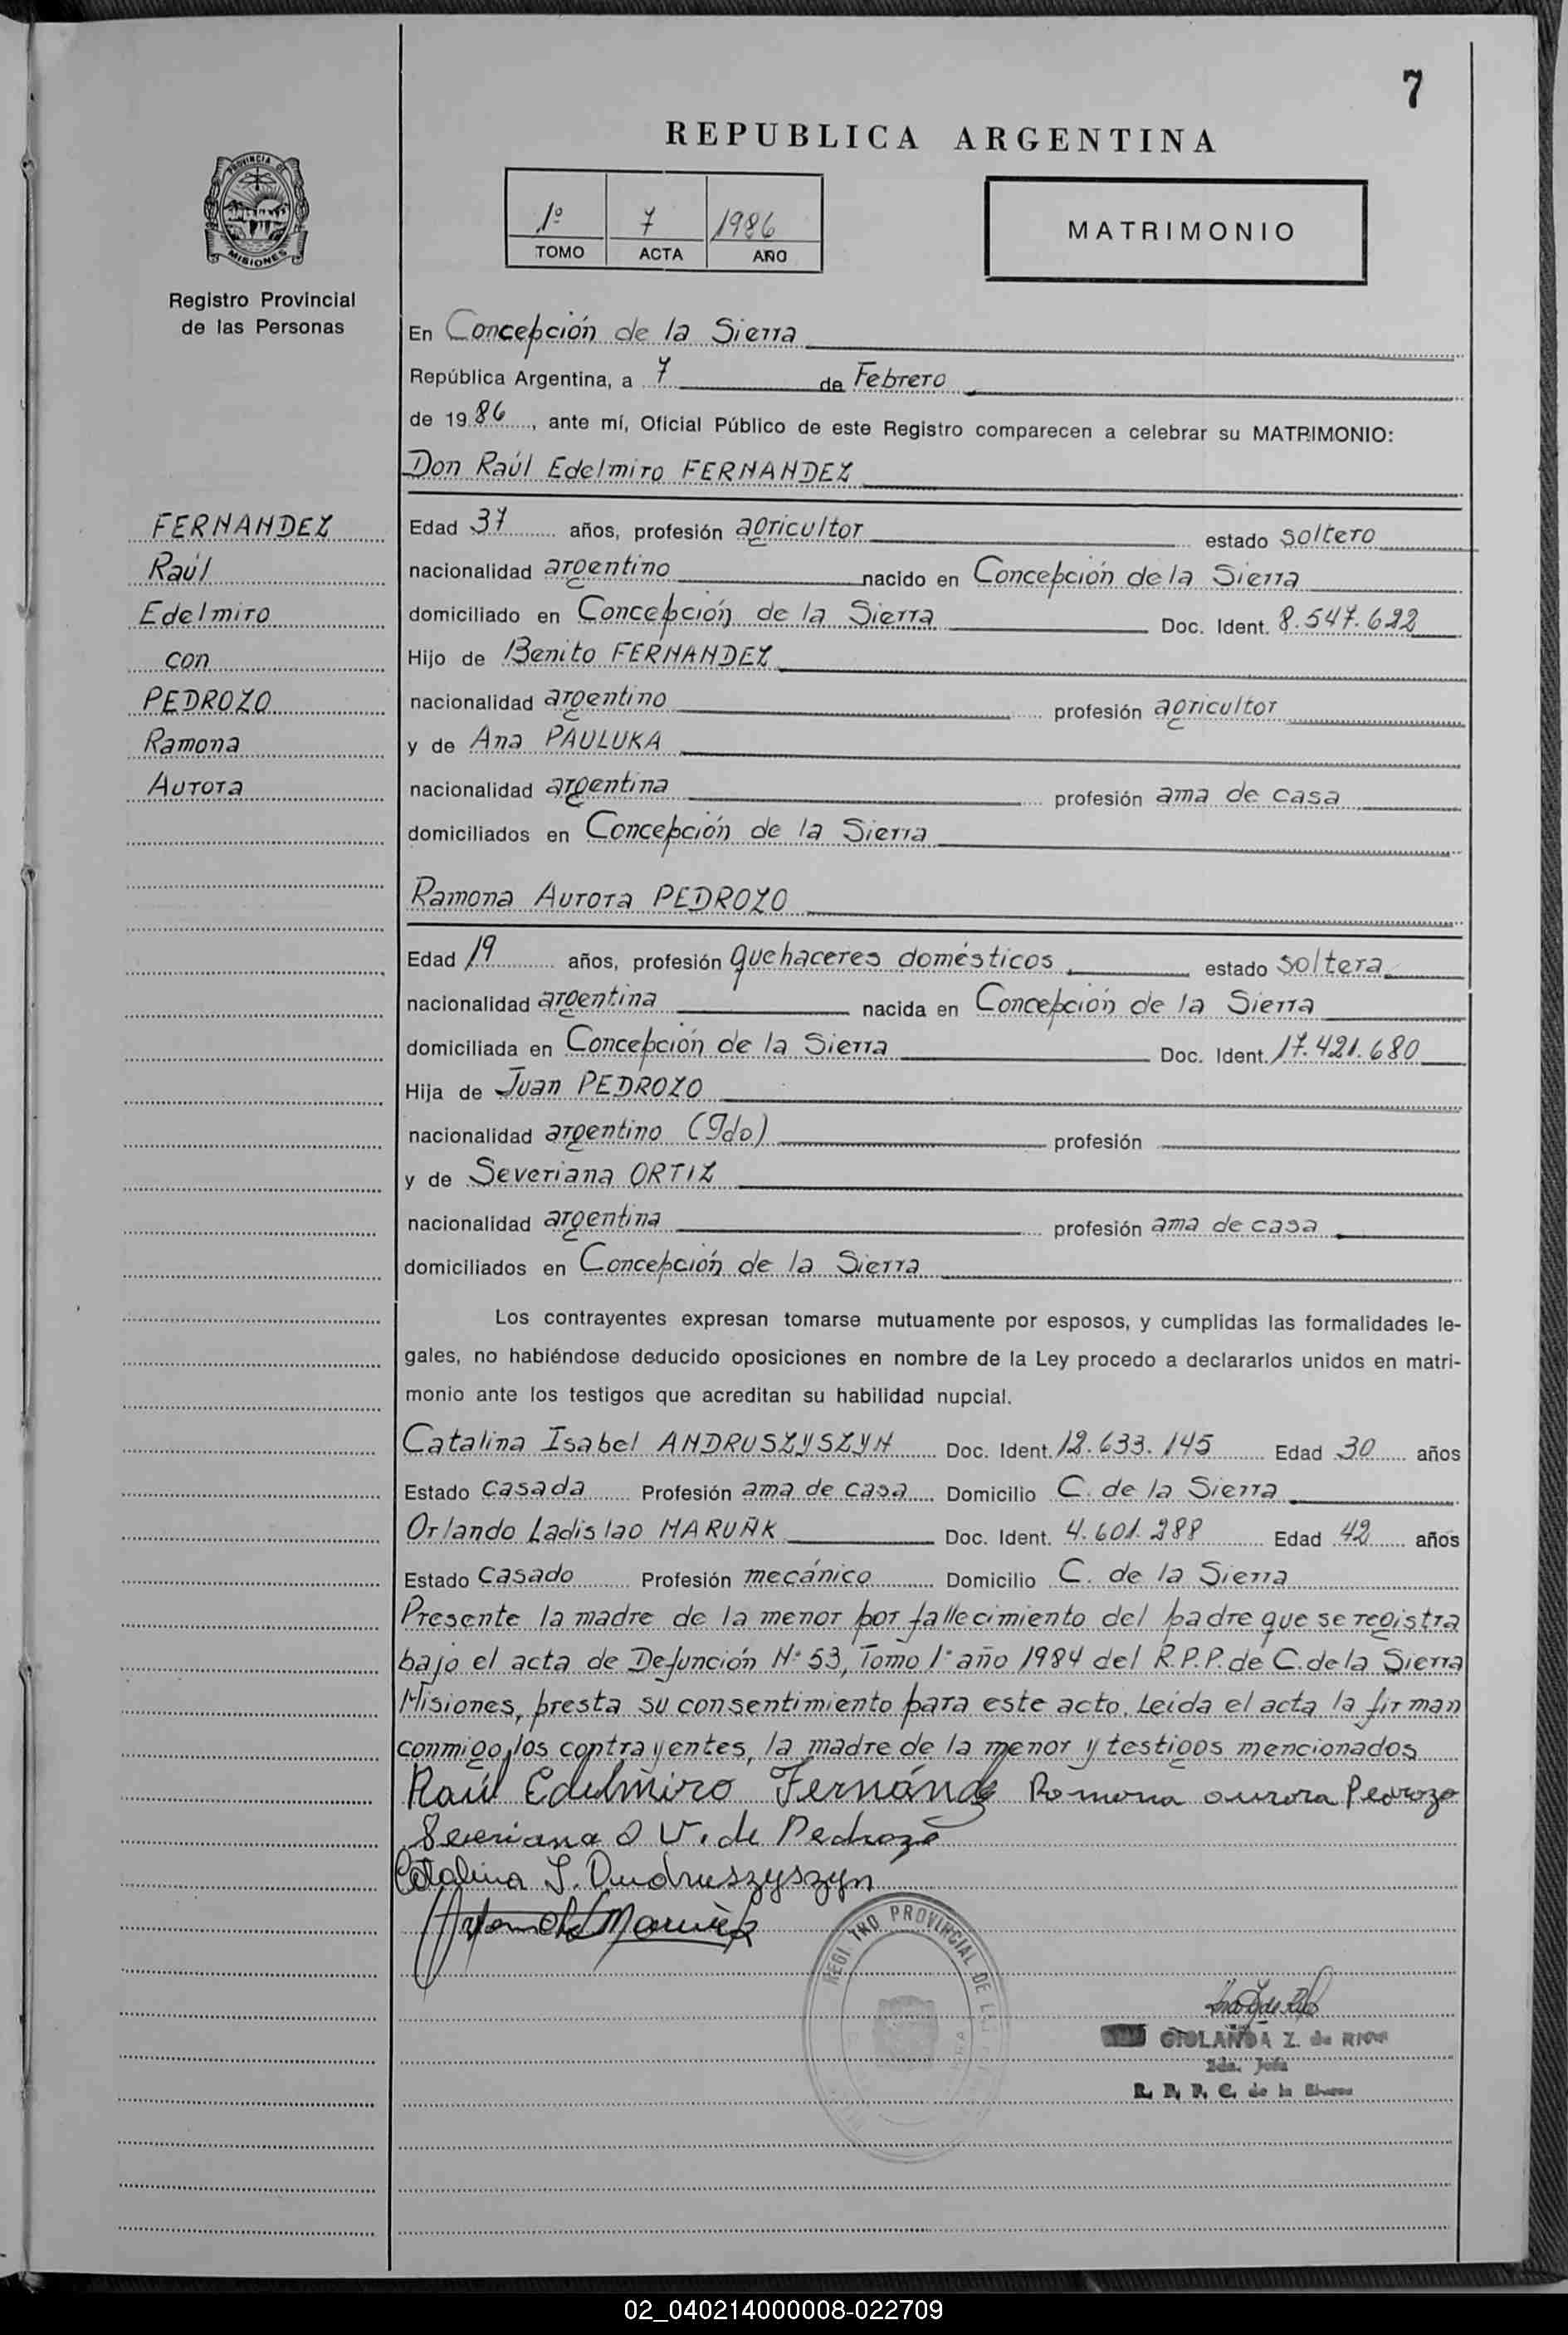 7
REPUBLICA ARGENTINA
PROVINCIA DE
MISIONES
Registro Provincial
de las Personas
1º 7 1986
TOMO ACTA AÑO
MATRIMONIO
En Concepción de la Sierra
República Argentina, a 7 de Febrero
de 1986, ante mí, Oficial Público de este Registro comparecen a celebrar su MATRIMONIO:
Don Raúl Edelmiro FERNANDEZ
FERNANDEZ
Raúl
Edelmiro
con
PEDROZO
Ramona
Aurora
Edad 37 años, profesión agricultor estado soltero
nacionalidad argentino nacido en Concepción de la Sierra
domiciliado en Concepción de la Sierra Doc. Ident. 8.547.622
Hijo de Benito FERNANDEZ
nacionalidad argentino profesión agricultor
y de Ana PAULUKA
nacionalidad argentina profesión ama de casa
domiciliados en Concepción de la Sierra
Ramona Aurora PEDROZO
Edad 19 años, profesión quehaceres domésticos estado soltera
nacionalidad argentina nacida en Concepción de la Sierra
domiciliada en Concepción de la Sierra Doc. Ident. 17.421.680
Hija de Juan PEDROZO
nacionalidad argentino (Fdo) profesión
y de Severiana ORTIZ
nacionalidad argentina profesión ama de casa
domiciliados en Concepción de la Sierra
Los contrayentes expresan tomarse mutuamente por esposos, y cumplidas las formalidades le-
gales, no habiéndose deducido oposiciones en nombre de la Ley procedo a declararlos unidos en matri-
monio ante los testigos que acreditan su habilidad nupcial.
Catalina Isabel ANDRUSZYSZYN Doc. Ident. 12.633.145 Edad 30 años
Estado casada Profesión ama de casa Domicilio C. de la Sierra
Orlando Ladislao MARUÑK Doc. Ident. 4.601.288 Edad 42 años
Estado casado Profesión mecánico Domicilio C. de la Sierra
Presente la madre de la menor por fallecimiento del padre que se registra
bajo el acta de Defunción Nº 53, Tomo 1º año 1984 del R.P.P. de C. de la Sierra
Misiones, presta su consentimiento para este acto. Leida el acta la firman
conmigo, los contrayentes, la madre de la menor y testigos mencionados
Raúl Edelmiro Fernández Romona aurora Pedrozo
Severiana O V. de Pedrozo
Catalina I. Andruszyszyn
REGISTRO PROVINCIAL DE LAS
GIOLANDA Z. de RIOS
R. P. P. C. de la Sierra
02_040214000008-022709